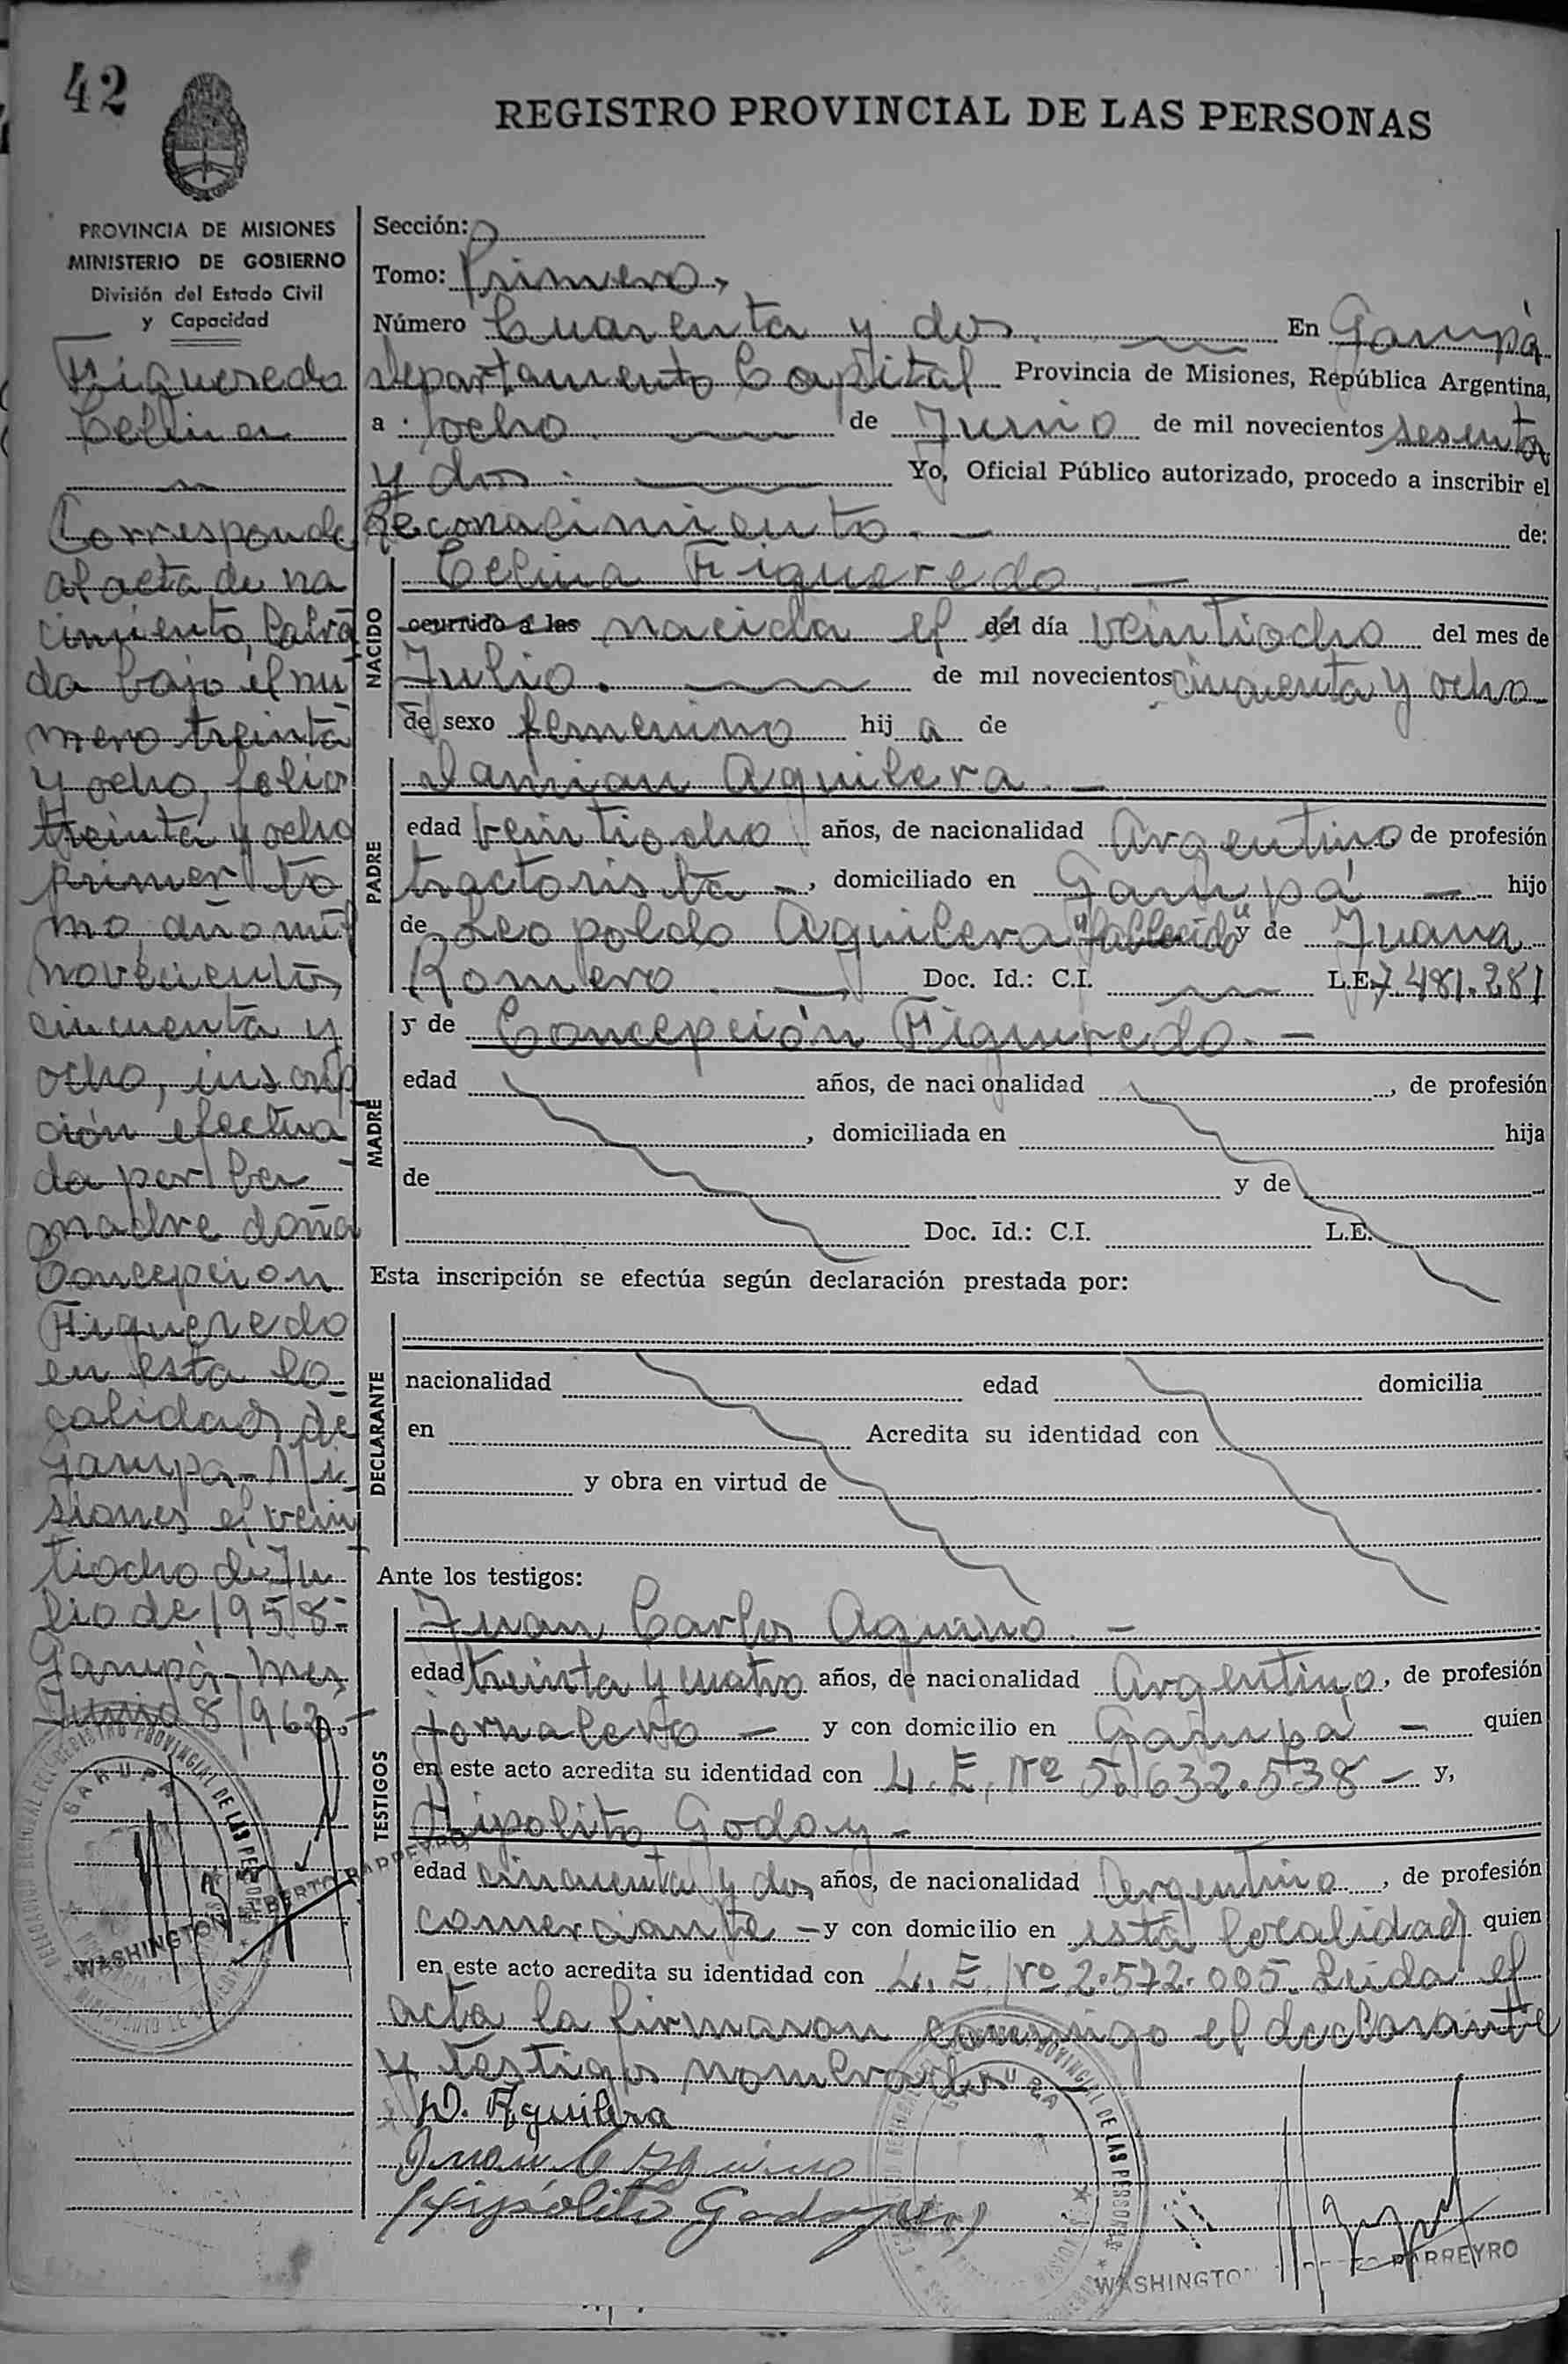 42
REGISTRO PROVINCIAL DE LAS PERSONAS
PROVINCIA DE MISIONES
MINISTERIO DE GOBIERNO
División del Estado Civil
y Capacidad
Figueredo
Celina
Corresponde
al acta de na
cimiento, labra
da bajo el nú
mero treinta
y ocho, folio
treinta y ocho
primer to
mo, año mil
novecientos
cincuenta y
ocho, inscrip
ción efectua
da por la
madre doña
Concepción
Figueredo
en esta lo-
calidad de
Garupá - Mi
siones el vein
tiocho de Ju
lio de 1958-
Garupá - Mnes,
Junio 8/962.-
Sección:
Tomo: Primero,
Número Cuarenta y dos. En Garupá
departamento Capital Provincia de Misiones, República Argentina,
a ocho de Junio de mil novecientos sesenta
y dos. Yo, Oficial Público autorizado, procedo a inscribir el
Reconocimiento. — de:
NACIDO
Celina Figueredo. —
ocurrido a las nacida el del día veintiocho del mes de
Julio. de mil novecientos cincuenta y ocho
de sexo femenino hij a de
PADRE
Damian Aguilera. —
edad veintiocho años, de nacionalidad Argentino de profesión
tractorista —, domiciliado en Garupá — hijo
de Leopoldo Aguilera "fallecido" y de Juana
Romero. — Doc. Id.: C.I. L.E. 7.481.281
MADRE
y de Concepción Figueredo. —
edad años, de nacionalidad , de profesión
, domiciliada en hija
de y de
Doc. Id.: C.I. L.E.
Esta inscripción se efectúa según declaración prestada por:
DECLARANTE
nacionalidad edad domicilia
en Acredita su identidad con
y obra en virtud de
Ante los testigos:
TESTIGOS
Juan Carlos Aquino. —
edad treinta y cuatro años, de nacionalidad Argentino, de profesión
jornalero — y con domicilio en Garupá — quien
en este acto acredita su identidad con L. E. Nº 5.632.538 — y,
Hipolito Godoy —
edad cincuenta y dos años, de nacionalidad Argentino , de profesión
comerciante — y con domicilio en esta localidad quien
en este acto acredita su identidad con L. E. Nº 2.572.005. Leida el
acta la firmaron conmigo el declarante
y testigos nombrados —
D. Aguilera
Juan C Aquino
Hipólito Godoy
GARUPA
WASHINGTON ALBERTO BARREYRO
GARUPA
WASHINGTON BARREYRO